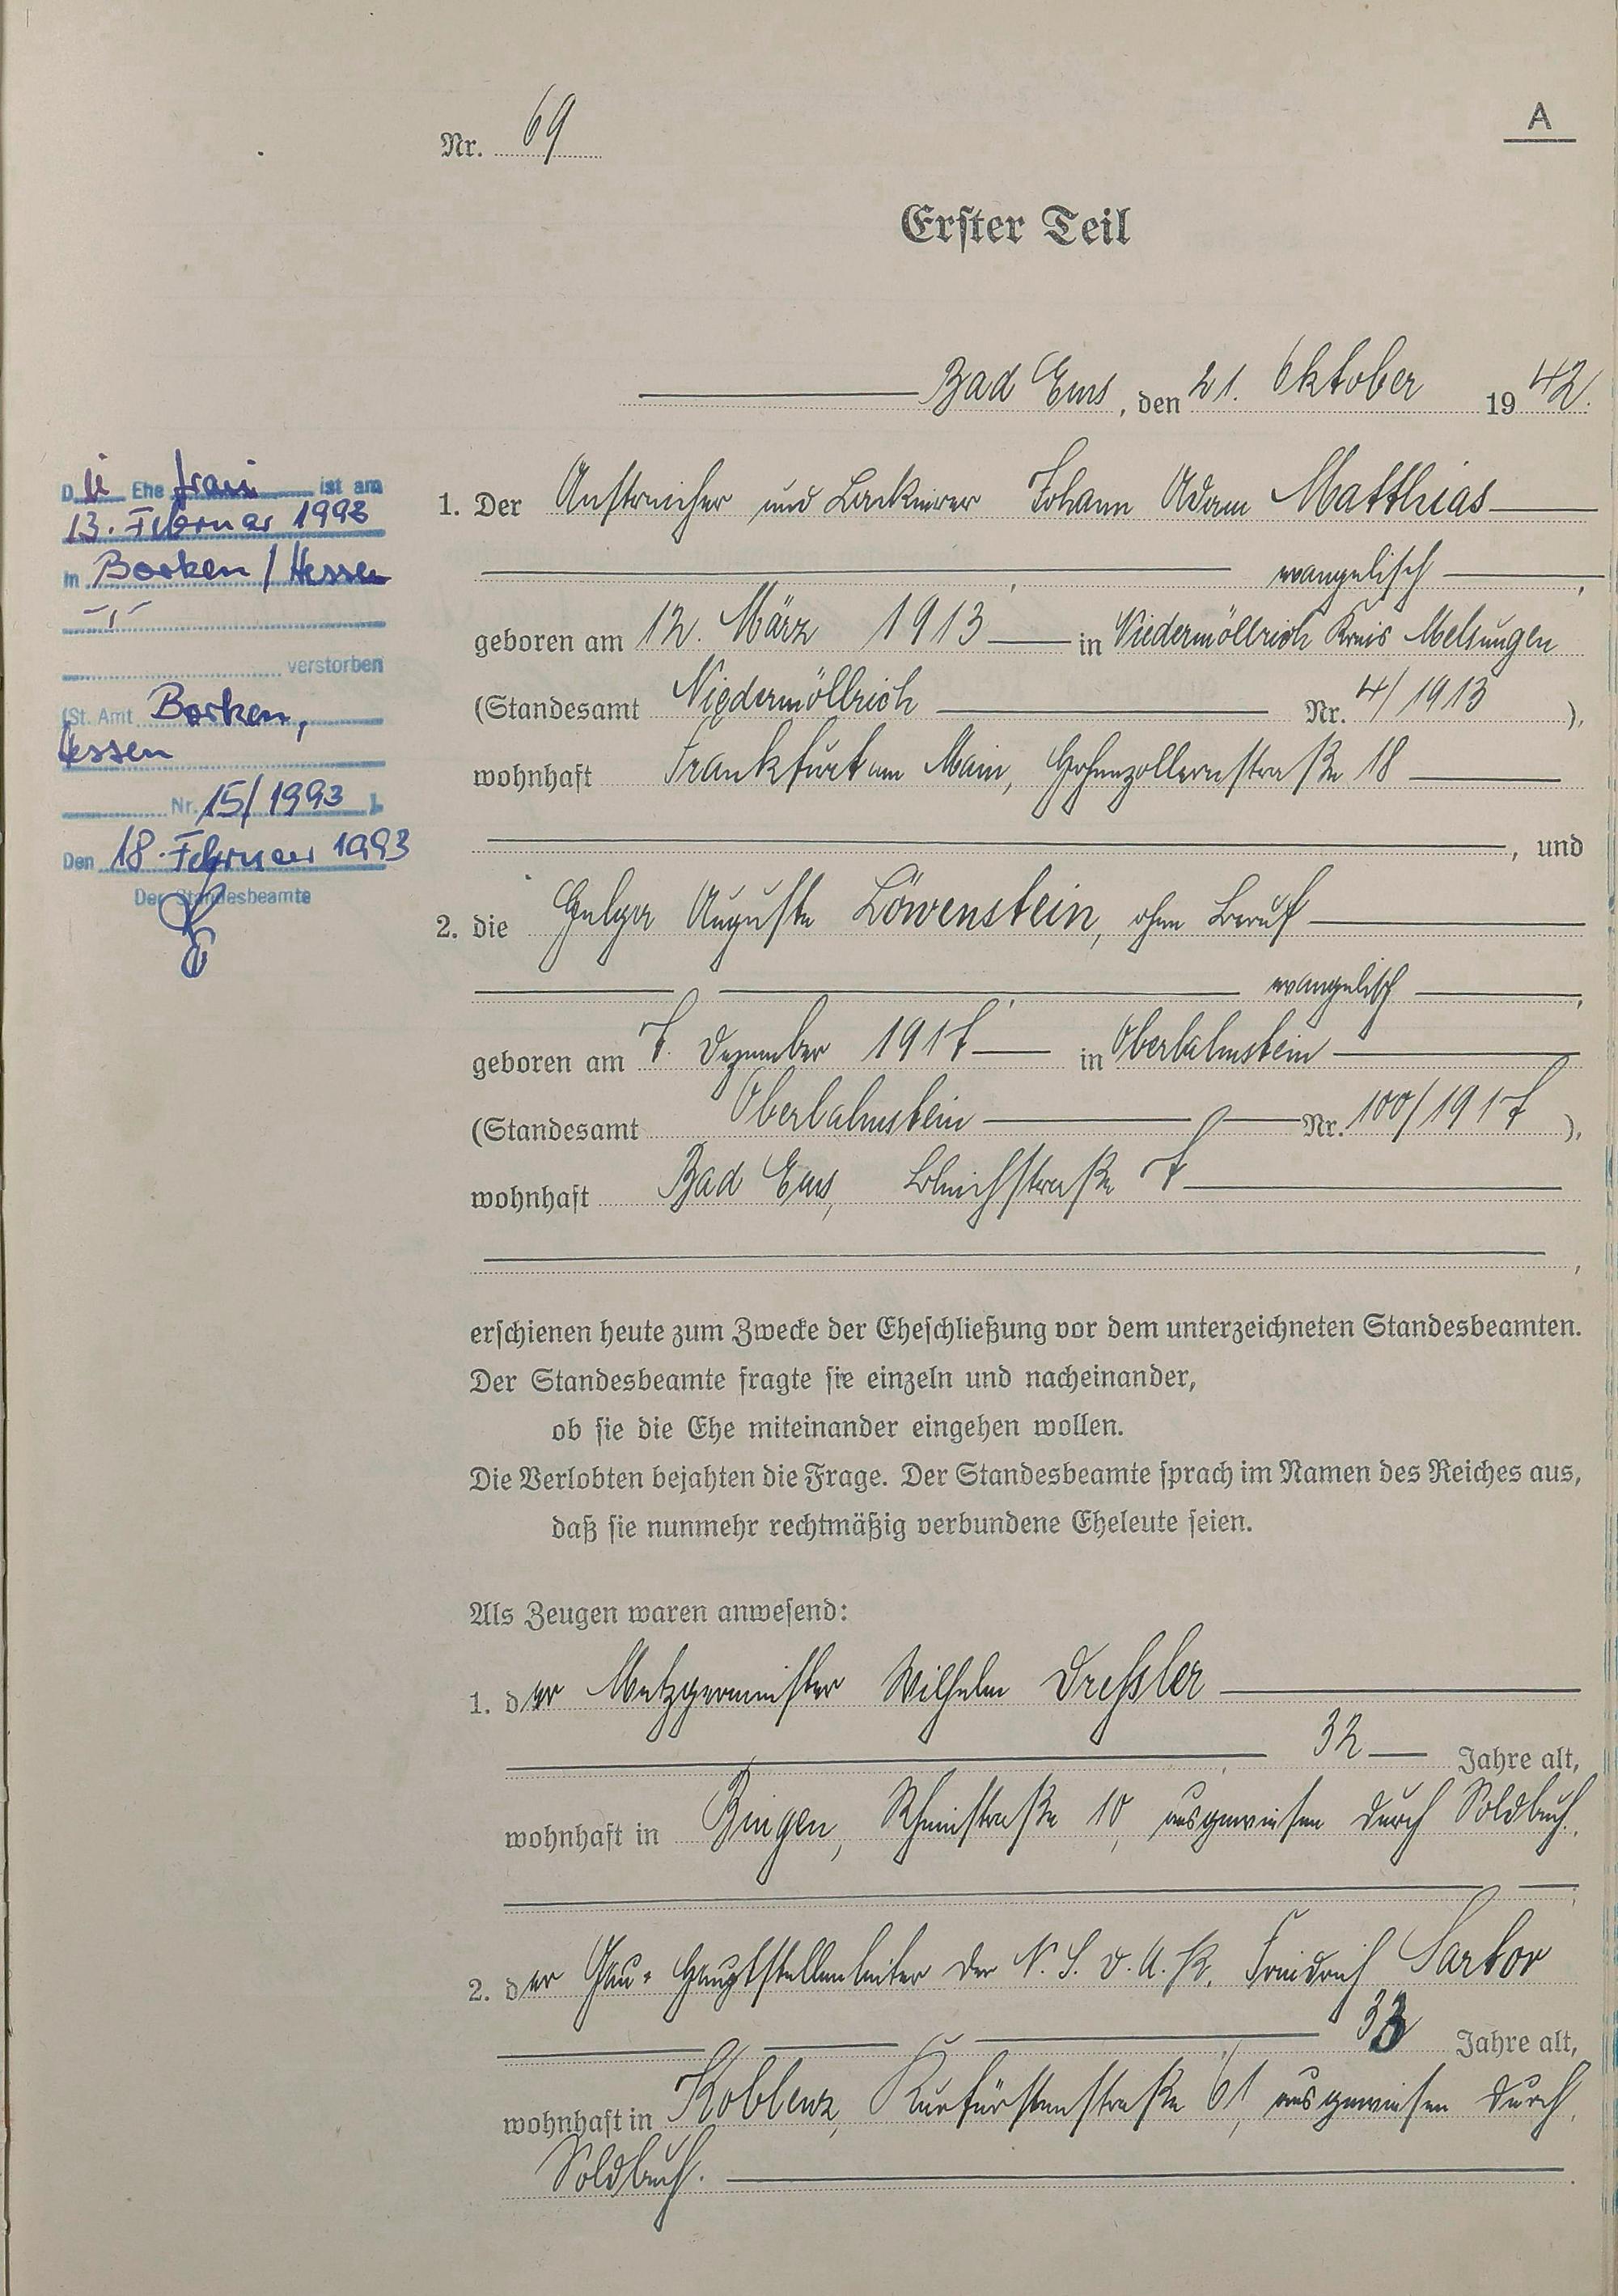 A
Nr. 69
Erster Teil
Bad Ems, den 21. Oktober 1942.
Die Ehefrau ist am
13. Februar 1993
in Borken / Hessen
verstorben
(St. Amt Borken,
Hessen
Nr. 15/1993 ).
Den 18. Februar 1993
Der Standesbeamte
1. Der Anstreicher und Lackierer Johann Adam Matthias
, evangelisch ,
geboren am 12. März 1913 in Niedermöllrich Kreis Melsungen
(Standesamt Niedermöllrich Nr. 4/1913 ),
wohnhaft Frankfurt am Main, Hohenzollernstraße 18
, und
2. die Helga Auguste Löwenstein, ohne Beruf
, evangelisch ,
geboren am 7. Dezember 1917 in Oberlahnstein
(Standesamt Oberlahnstein Nr. 100/1917 ),
wohnhaft Bad Ems, Bleichstraße 7
,
erschienen heute zum Zwecke der Eheschließung vor dem unterzeichneten Standesbeamten.
Der Standesbeamte fragte sie einzeln und nacheinander,
ob sie die Ehe miteinander eingehen wollen.
Die Verlobten bejahten die Frage. Der Standesbeamte sprach im Namen des Reiches aus,
daß sie nunmehr rechtmäßig verbundene Eheleute seien.
Als Zeugen waren anwesend:
1. der Metzgermeister Wilhelm Dressler
, 32 Jahre alt,
wohnhaft in Bingen, Rheinstraße 10, ausgewiesen durch Soldbuch.
;
2. der Gau-Hauptstellenleiter der N.S.D.A.P. Friedrich Sartor
, 33 Jahre alt,
wohnhaft in Koblenz, Kurfürstenstraße 61, ausgewiesen durch
Soldbuch.